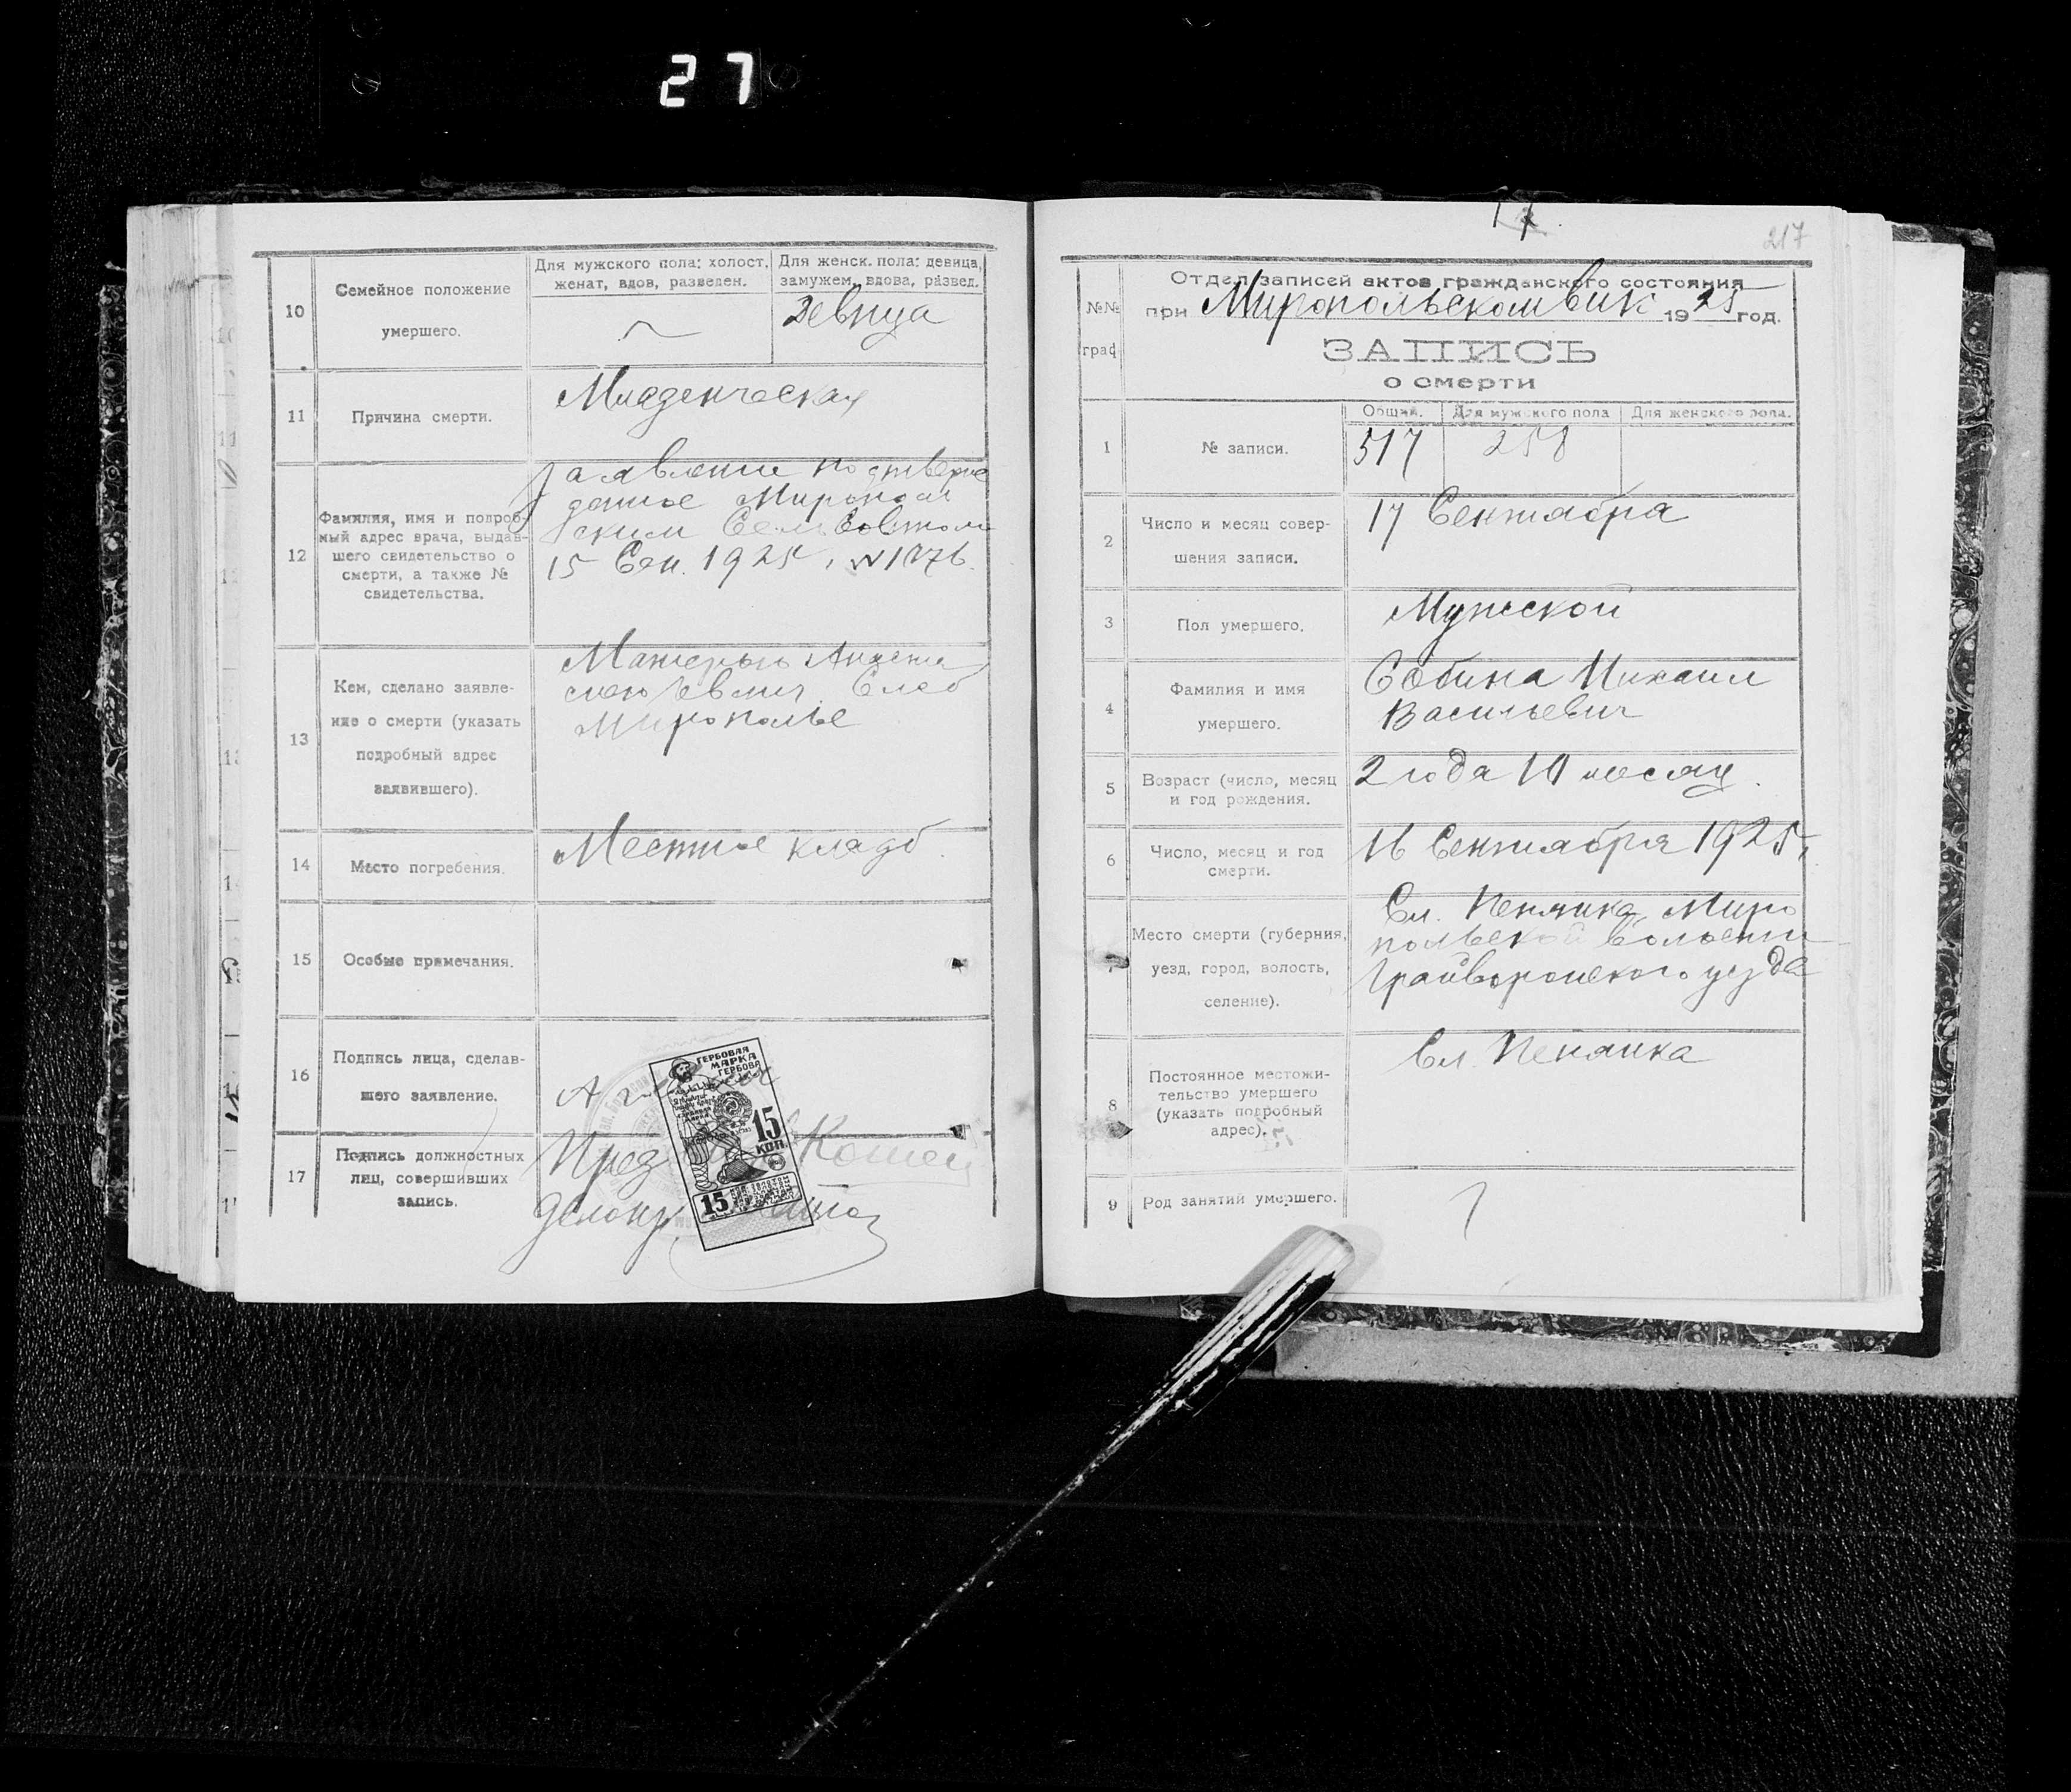 27
10
Семейное положение
умершего.
Для мужского пола: холост,
женат, вдов, разведен.
Для женск. пола: девица,
замужем, вдова, развед.
Девица
11
Причина смерти.
Младенческая
12
Фамилия, имя и подроб-
ный адрес врача, выдав-
шего свидетельство о
смерти, а также №
свидетельства.
Заявление подтверж
денное Миропол
ским СельСоветом
15 Сен. 1925
13
Кем, сделано заявле-
ние о смерти (указать
подробный адрес
заявившего).
Матерью
Слоб
Мирополье
14
Место погребения.
Местное кладб.
15
Особые примечания.
16
Подпись лица, сделав-
шего заявление.
ГЕРБОВАЯ
МАРКА
ГЕРБОВА
15
КОП.
15
17
Подпись должностных
лиц, совершивших
запись.
Пред
17
217
№№
граф
Отдел записей актов гражданского состояния
при Миропольском вик 1925 год.
ЗАПИСЬ
о смерти
Общий. Для мужского пола Для женского пола.
1
№ записи.
517 258
2
Число и месяц совер-
шения записи.
17 Сентября
3
Пол умершего.
Мужской
4
Фамилия и имя
умершего.
Собина Михаил
Васильевич
5
Возраст (число, месяц
и год рождения.
2 года 10 месяц.
6
Число, месяц и год
смерти.
16 Сентября 1925г.
Место смерти (губерния,
уезд, город, волость,
селение).
Сл. Пенянка, Миро
польской волости
Грайворонского уезда
8
Постоянное местожи-
тельство умершего
(указать подробный
адрес).
Сл. Пенянка
9
Род занятий умершего.